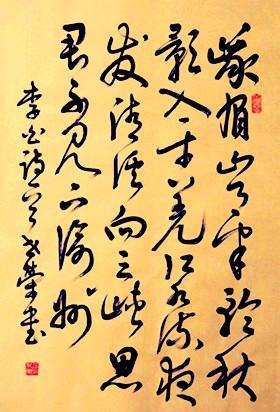 峨眉山月半轮秋
影入平羌江水流夜
发清溪向三峡思
君不见下渝州
李白诗一首 荣书